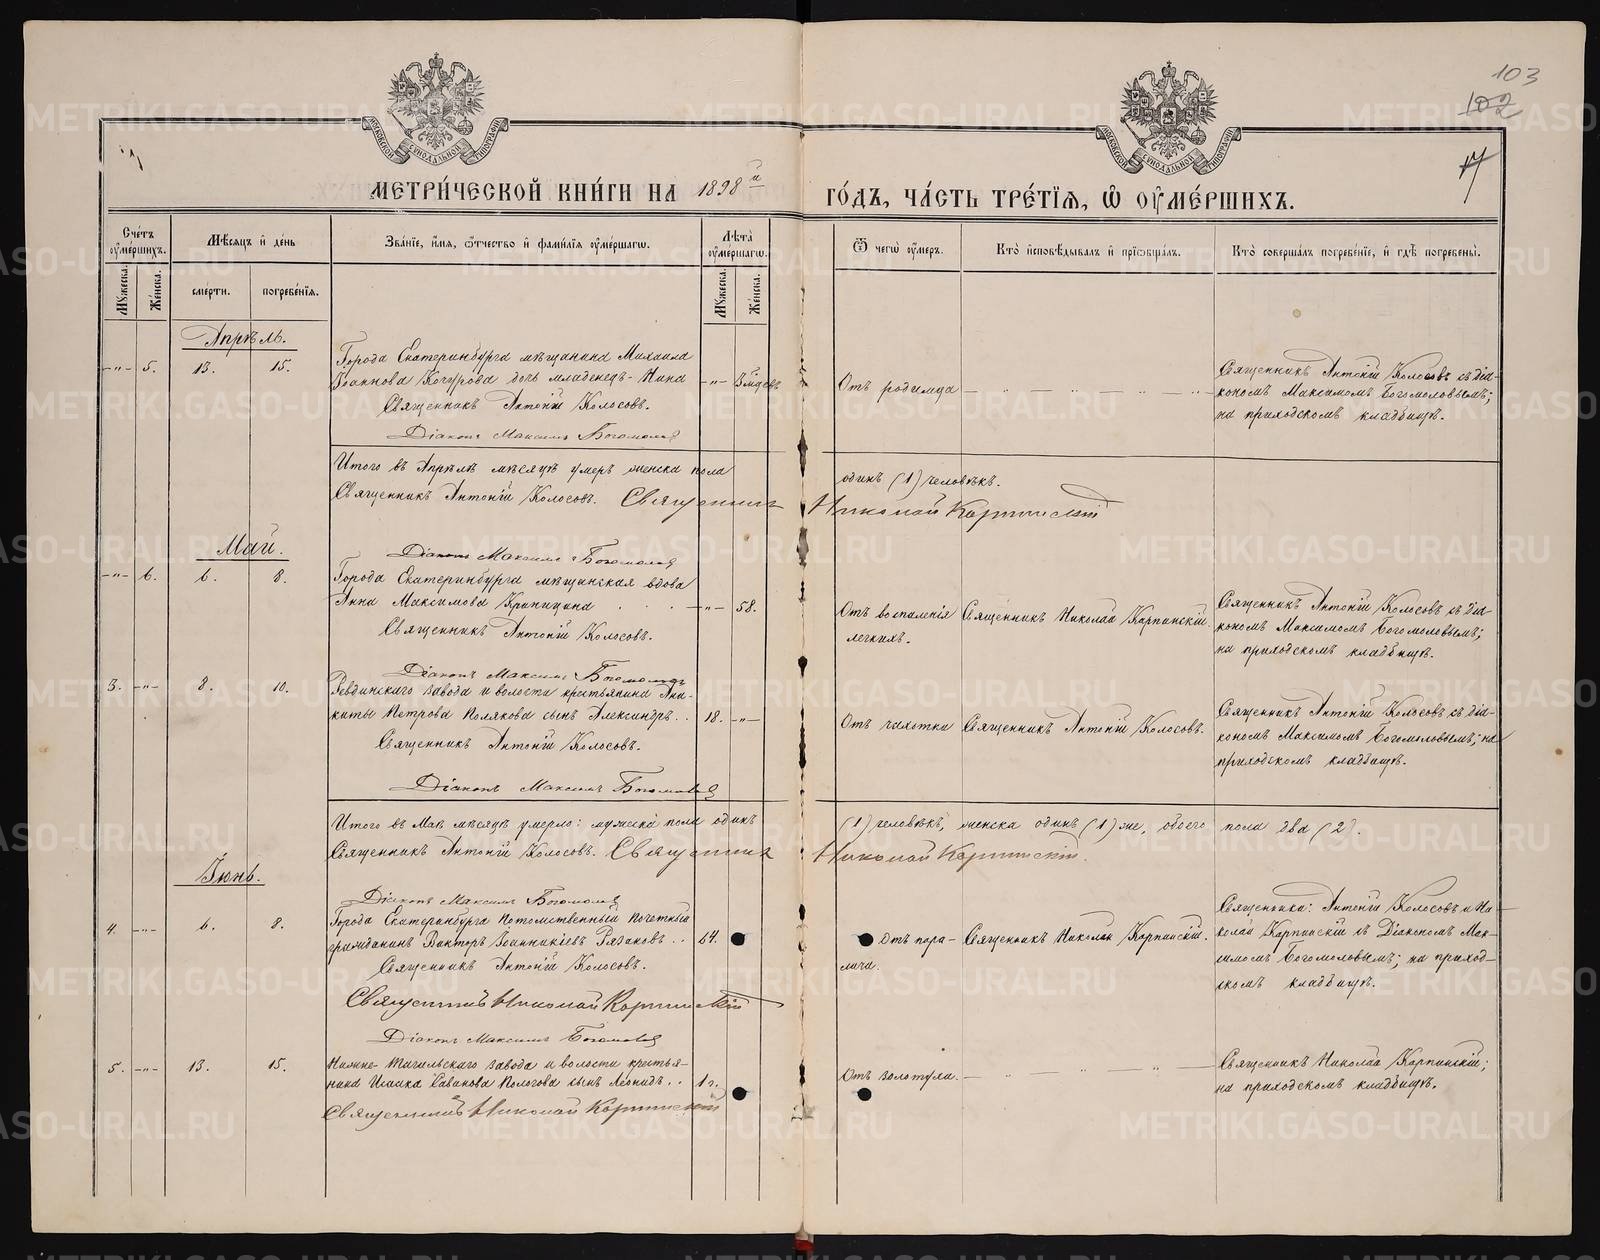 103
102
17
МЕТРИ́ЧЕСКОЙ КНИ́ГИ НА 1898й
ГО́ДЪ, ЧА́СТЬ ТРЕ́ТІѦ, Ѡ ОУМЕ́РШИХЪ.
Сче́тъ оуме́ршихъ.
Мѣ́сяцъ и де́нь
Зва́ніе, и́мя, о́тчество и фами́лія оуме́ршагѡ.
Лѣ́та оуме́ршагѡ.
Ѿ чегѡ̀ оу́меръ.
Кто̀ исповѣ́дывалъ и пріѡбща́лъ.
Кто̀ соверша́лъ погребе́ніе, и гдѣ̀ погребены̀.
Му́жеска.
Же́нска.
сме́рти.
погребе́нія.
Му́жеска.
Же́нска.
Апрѣль.
-„- 5. 13. 15.
Города Екатеринбурга мѣщанина Михаила
Іоаннова Кочурова дочь младенецъ - Нина
Священникъ Антоній Колосовъ.
Діаконъ Максимъ Богомоловъ
Отъ родимца
Священникъ Антоній Колосовъ съ діа-
кономъ Максимомъ Богомоловымъ;
на приходскомъ кладбищѣ.
Итого въ Апрѣлѣ мѣсяцѣ умеръ женска пола
одинъ (1) человѣкъ.
Священникъ Антоній Колосовъ. Священникъ
Николай Карпинскій
Май.
Діаконъ Максимъ Богомоловъ
-„- 6. 6. 8.
Города Екатеринбурга мѣщинская вдова
Анна Максимова Крапицына -„- 58.
Священникъ Антоній Колосовъ.
Отъ воспаленія
легкихъ.
Священникъ Николай Карпинскій.
Священникъ Антоній Колосовъ съ діа-
кономъ Максимомъ Богомоловымъ;
на приходскомъ кладбищѣ.
Діаконъ Максимъ Богомоловъ
3. -„- 8. 10.
Ревдинскаго завода и волости крестьянина Ани-
киты Петрова Полякова сынъ Александръ.. 18. -„-
Священникъ Антоній Колосовъ.
Отъ чахотки
Священникъ Антоній Колосовъ.
Священникъ Антоній Колосовъ съ діа-
кономъ Максимомъ Богомоловымъ; на
приходскомъ кладбищѣ.
Діаконъ Максимъ Богомоловъ
Итого въ Маѣ мѣсяцѣ умерло: мужска пола одинъ
(1) человѣкъ, женска одинъ (1) же, обоего пола два (2).
Священникъ Антоній Колосовъ. Священникъ
Николай Карпинскій.
Іюнь.
Діаконъ Максимъ Богомоловъ
4. -„- 6. 8.
Города Екатеринбурга Потомственный Почетный
гражданинъ Викторъ Іоанникіевъ Рязановъ.. 64.
Священникъ Антоній Колосовъ.
Священникъ Николай Карпинскій
Діаконъ Максимъ Богомоловъ
Отъ пара-
лича.
Священникъ Николай Карпинскій.
Священники: Антоній Колосовъ и Ни-
колай Карпинскій съ Діакономъ Мак-
симомъ Богомоловымъ; на приход-
скомъ кладбищѣ.
5. -„- 13. 15.
Нижне-Тагильскаго завода и волости крестья-
нина Исаака Савинова Пологова сынъ Леонидъ.. 1 г.
Священникъ Николай Карпинскій
Отъ золотухи.
Священникъ Николай Карпинскій;
на приходскомъ кладбищѣ.
METRIKI.GASO-URAL.RU